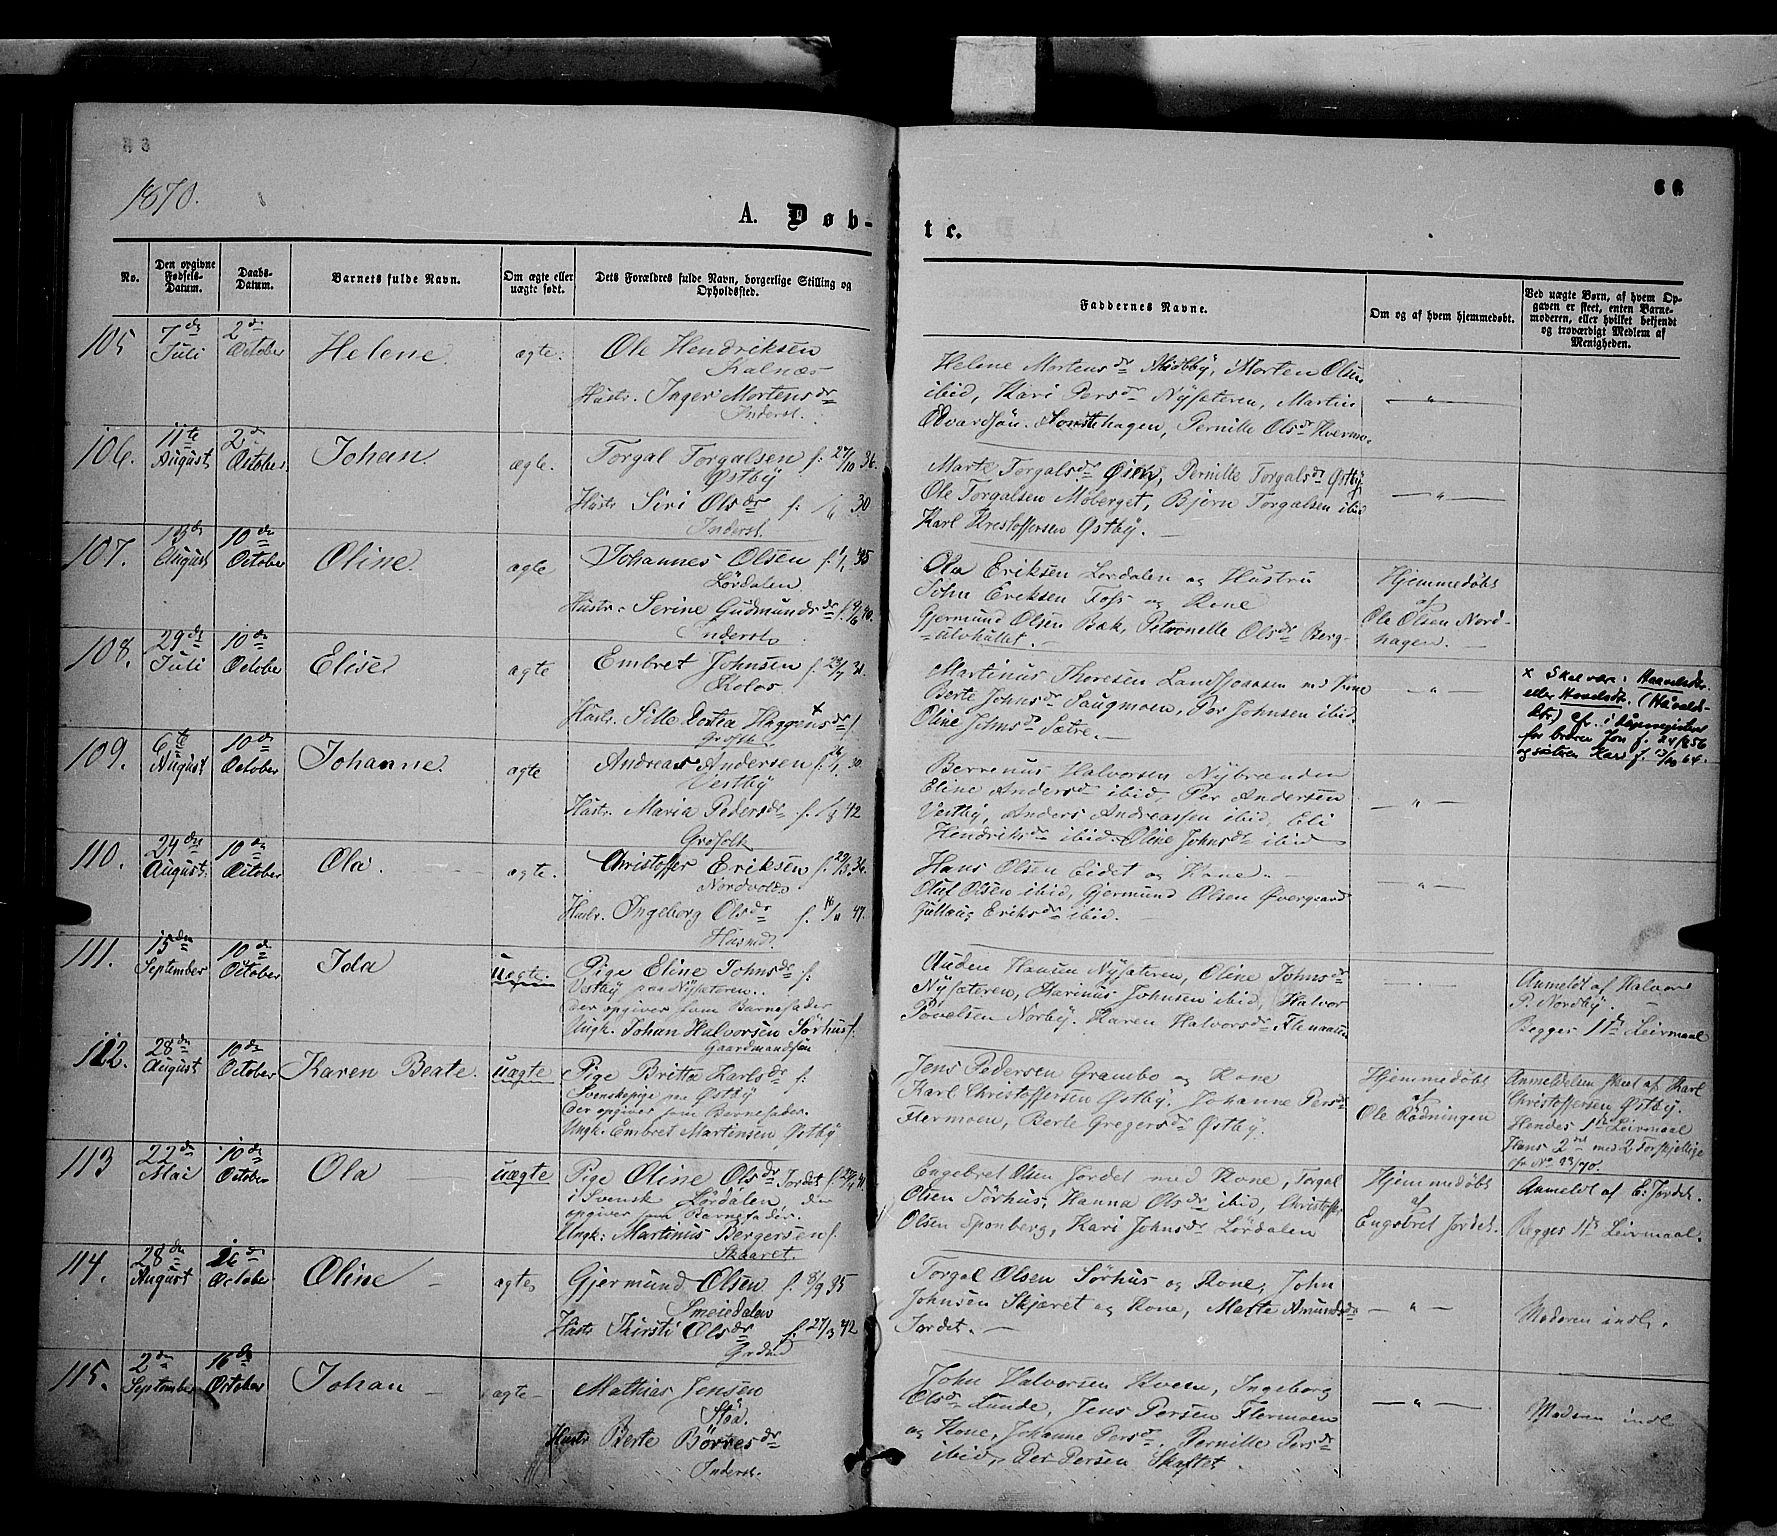 1870.
66
A. Døb-
te.
No.
Den opgivne Fødsels-Datum.
Daabs-Datum.
Barnets fulde Navn.
Om ægte eller uægte født.
Dets Forældres fulde Navn, borgerlige Stilling og Opholdssted.
Faddernes Navne.
Om og af hvem hjemmedøbt.
Ved uægte Børn, af hvem Opgaven er skeet, enten Barnemoderen, eller hvilket bekjendt og troværdigt Medlem af Menigheden.
105
7de Juli
2den October
Helene
ægte.
Ole Hendriksen
Kalnæs
Hustr. Inger Mortensdr
Inderst.
Helene Mortensdr Midtby, Morten Olsen
ibid, Kari Persdr Nysæteren, Martin
Edvardsön. hagen, Pernille Olsdr Kvermo.
— " —
106.
11te August
2den October
Johan.
ægte.
Torgal Torgalsen f. 27/10 36.
Østby
Hustr Siri Olsdr f. 30.
Inderst.
Marte Torgalsdr Øien, Pernille Torgalsdr Østby
Ole Torgalsen Moberget, Bjørn Torgalsen ibid
Karl Kristoffersen Østby. —
— " —
107.
13de August
10de October
Oline
ægte
Johannes Olsen f. 1/1 35
Lördalen
Hustr. Serine Gudmundsdr f. 9/6 40.
Inderst.
Ola Eriksen Lördalen og Hustru
John Eriksen Foss og Kone
Gjermund Olsen Bæk, Petronelle Olsdr Berg-
ulvhullet.
Hjemmedøbt
af
Ole Olsen Nord-
hagen. —
108.
29de Juli
10de October
Elise
ægte
Embret Johnsen f. 29/7 31.
Kolos
Hustr. Sille Dortea Haggensdr x f.
Martinus Thoresen med Kone
Berte Johnsdr Saugmoen, Per Johnsen ibid.
Oline Johnsdr Sætre. —
— " —
x Skal være: Haavelsdtr.
eller Havelsdtr. (Havalds-
dtr.) cfr. i
for broren Jon f. 24/8 56
og søsteren Kari f. 17/10 64.
109.
6te August
10de October
Johanne.
ægte
Andreas Andersen f. 30.
Vestby
Hustr. Maria Pedersdr f. 42
Bernenus Halvorsen Nybrænden
Eline Andersdr ibid, Per Andersen
Vestby, Anders Andreassen ibid, Eli
Hendriksdr ibid. Oline Johnsdr ibid
— " —
110.
24de August
10de October
Ola.
ægte.
Christoffer Eriksen f. 29/3 36.
Nordvolds
Hustr. Ingeborg Olsdr f. 16/11 47.
Hans Olsen Eidet og Kone. —
Oluf Olsen ibid, Gjermund Olsen Øvergaard
Eriksdr ibid. —
— " —
111.
15de September
10de October
Ida
uægte.
Pige Eline Johnsdr f.
Vestby paa Nysæteren.
der opgiver som Barnefader
Ungk. Johan Halvorsen Sörhus f.
Gaardmandssön
Auden Hansen Nysæteren, Oline Johnsdr
Nysæteren, Marinus Johnsen ibid, Halvor
Povelsen Norby. Karen Halvorsdr
Anmeldt af Halvor
P. Nordby. —
Begges 1ste Leirmaal
112.
28de August
10de October
Karen Beate.
uægte
Pige Britta Karlsdr f.
Svenskepige paa Østby
der opgiver som Barnefader.
Ungk. Embret Martinsen Østby
Jens Pedersen Grambo og Kone
Karl Christoffersen Østby. Johanne Persdr
Flermoen, Berte Gregersdr Østby.
Hjemmedøbt
af
Ole Rødningen
Anmeldelsen skeet af Karl
Christoffersen Østby.
Hendes 1ste Leirmaal
Hans 2det med 2 Forskjellige
cfr No 23/70.
113
22de Mai
10de October
Ola
uægte
Pige Oline Olsdr Jordet f.
i Svensk Lördalen der
opgiver som Barnefader.
Ungk: Martinus Bergersen f.
Skaaret.
Engebret Olsen Jordet med Kone, Torgal
Olsen Sörhus, Hanna Olsdr ibid, Christoffer
Olsen Sponberg, Kari Johnsdr Lördalen
Hjemmedøbt
af
Engebret Jordet.
Anmeldt af E. Jordet.
Begges 1ste Leirmaal.
114.
28de August
16de October
Oline
ægte
Gjermund Olsen f. 8/9 35
Smeiedalen
Hustr Kirsti Olsdr f. 27/3 42
Torgal Olsen Sörhus og Kone, John
Johnsen Skjæret og Kone, Marte Amundsdr
Jordet. —
— " —
Moderen indl.
115.
2den September
16de October
Johan
ægte
Mathias Jensen
Stöa.
Hustr Berte Börresdr
Inderst.
John Halvorsen Kveen, Ingeborg
Olsdr Lunde, Jens Persen Flermoen
og Kone, Johanne Persdr. Pernille Persdr
ibid, Per Persen Skaftet.
— " —
Moderen indl.